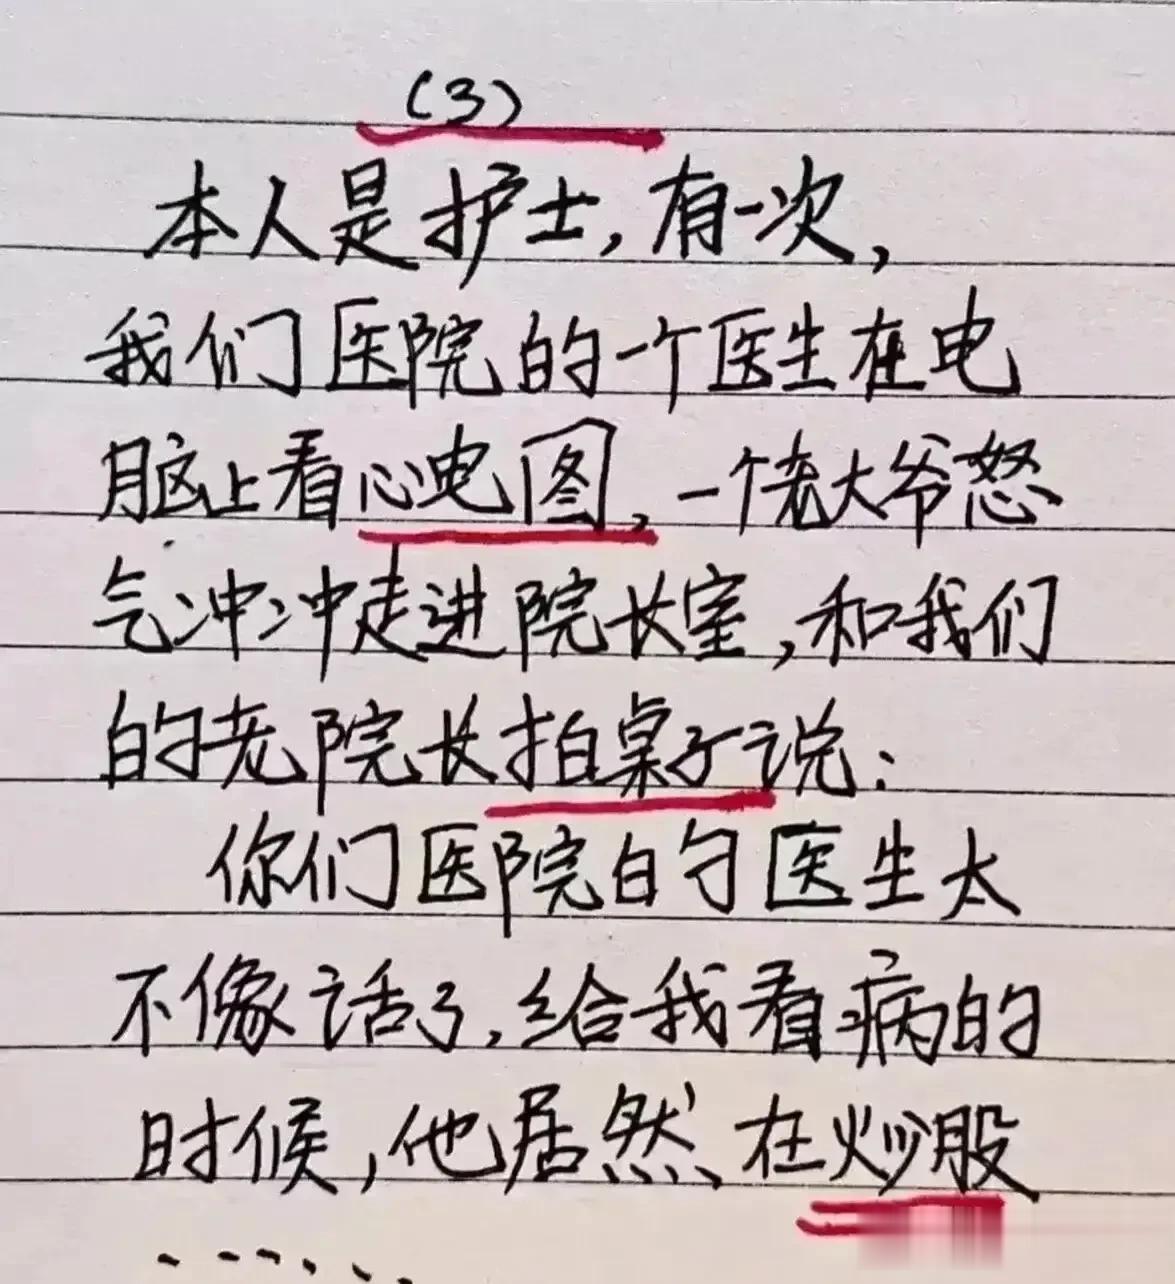 (3)
本人是护士,有一次,
我们医院的一个医生在电
脑上看心电图,一个老大爷怒
气冲冲走进院长室,和我们
的老院长拍桌子说:
你们医院的医生太
不像话了,给我看病的
时候,他居然在炒股
......